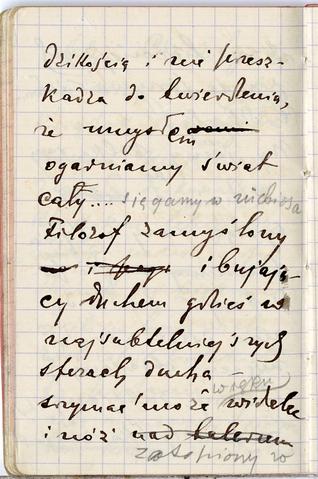 dzikością i nie przesz-
kadza do twierdzenia,
że umysłem
ogarniamy świat
cały.... sięgamy w niebiosa
Filozof zamyślony
i bujają-
cy duchem gdzieś w
najsubtelniejszych
sferach ducha
w ręku
trzymać może widelec
i nóż nad talerzem
zatopiony w